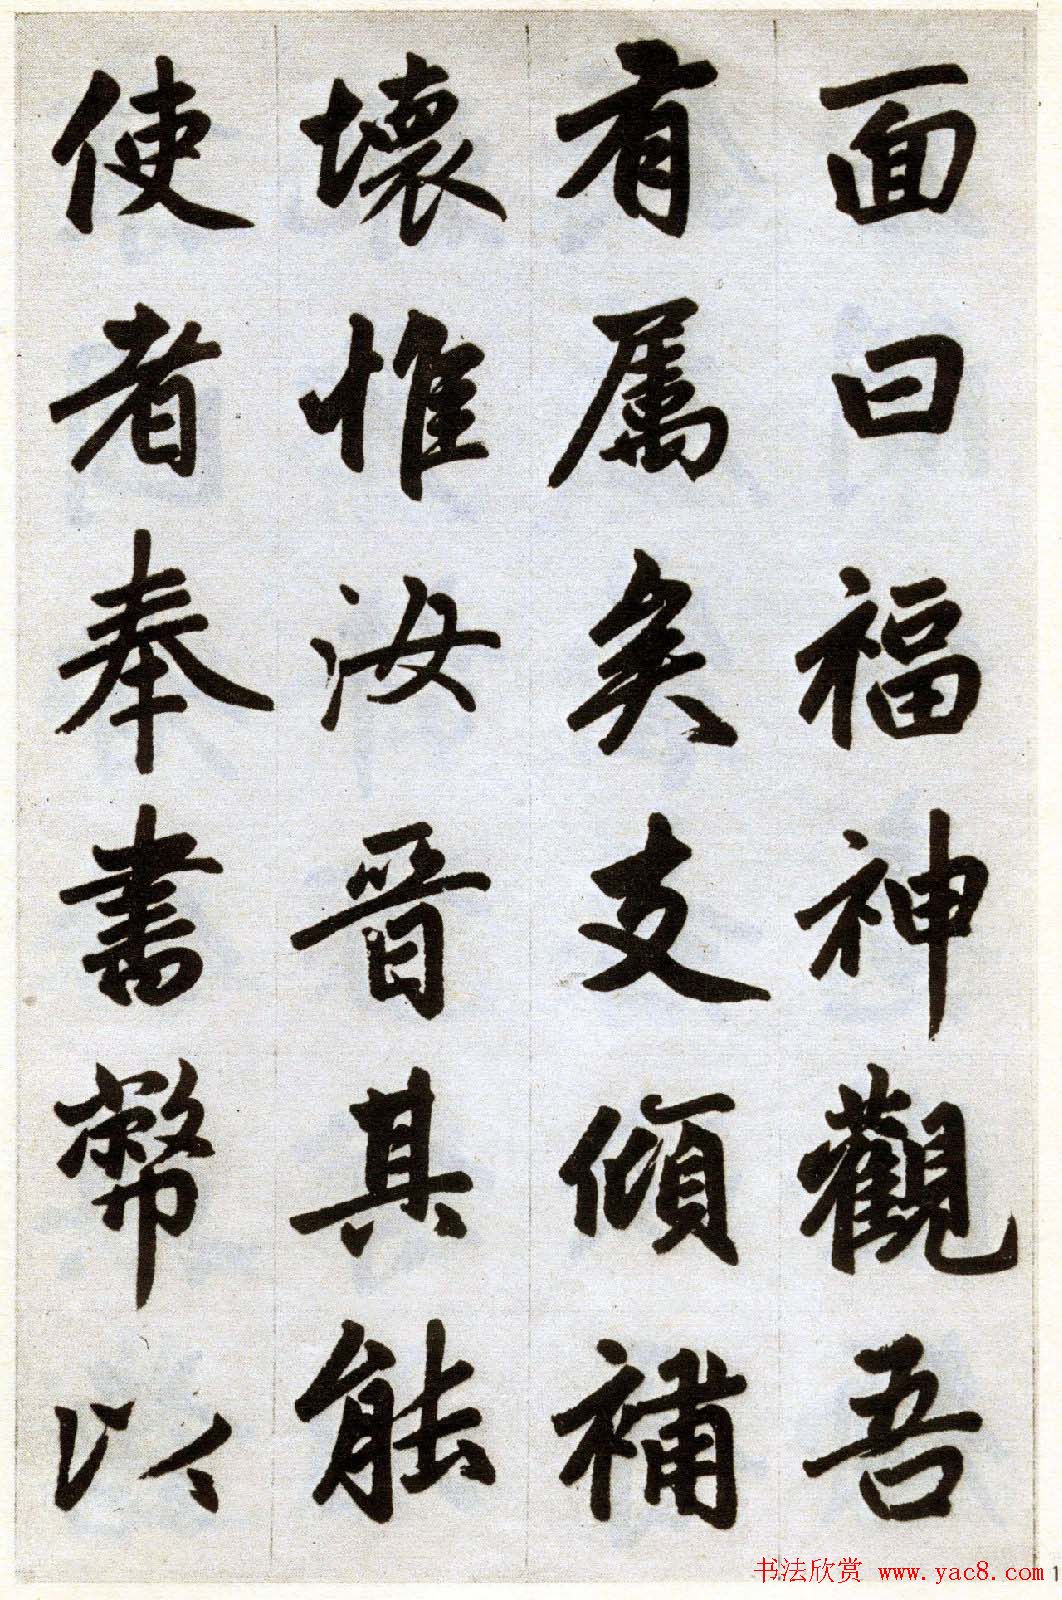 面曰福神觀吾
有属矣支傾補
壞惟汝晋其能
使者奉書幣以
书法欣赏 www.yac8.com
1